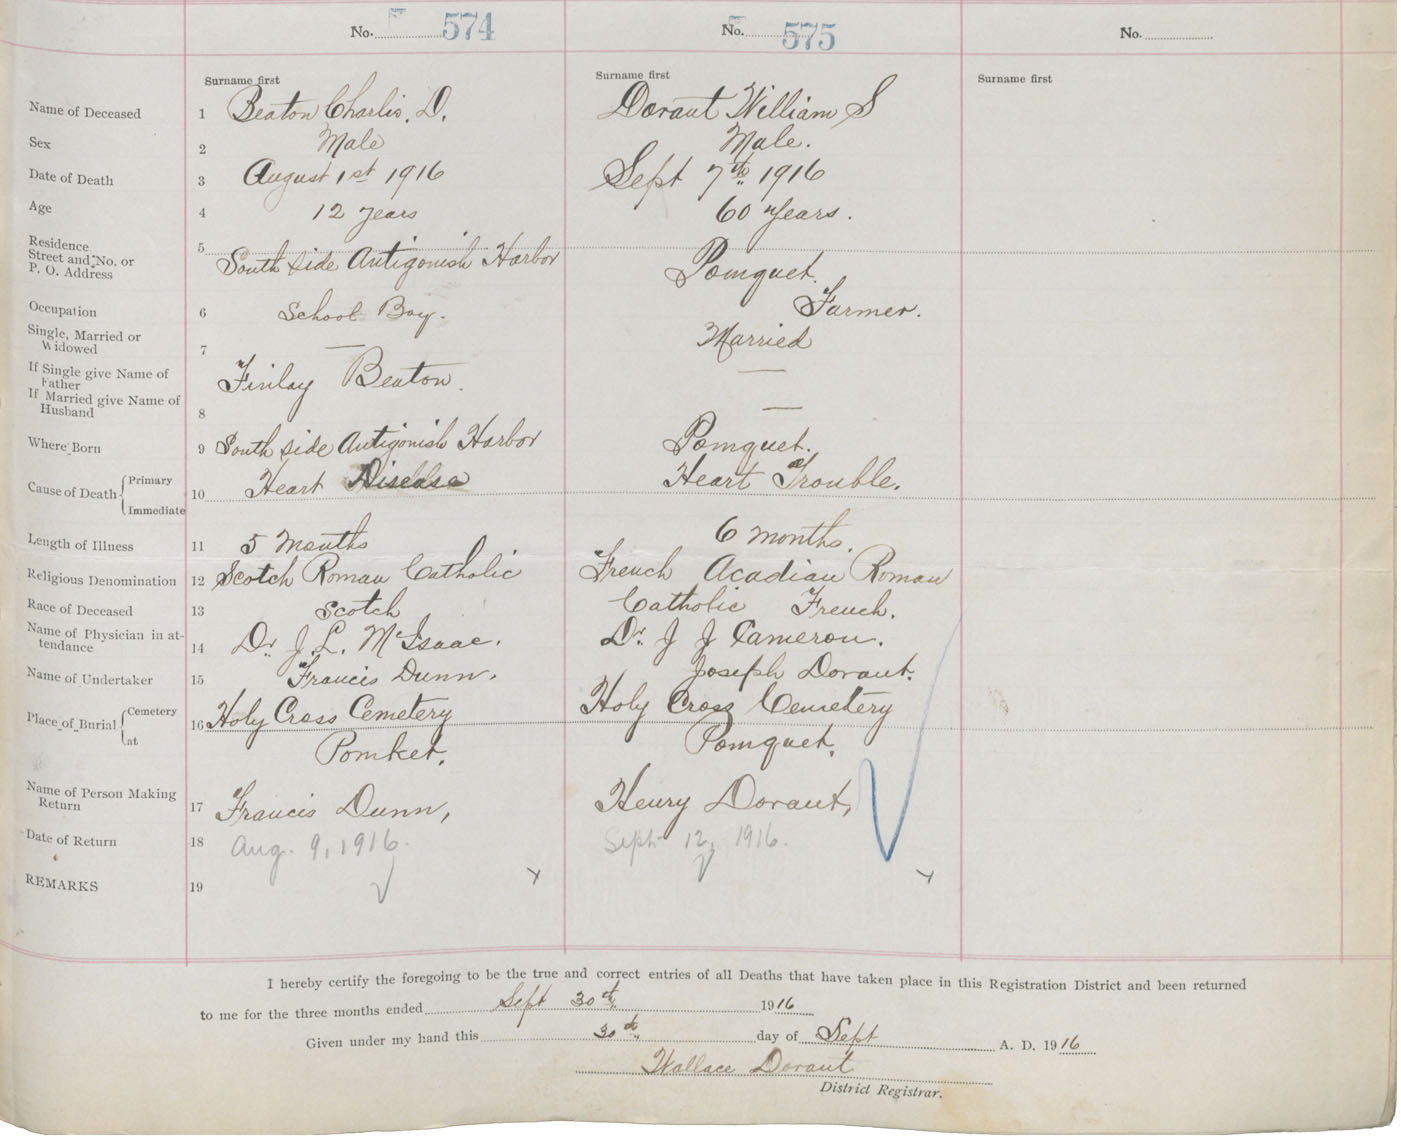 No. 574 No. 575 No.
Surname first Surname first Surname first
Name of Deceased 1 Beaton Charlie. D. Dorant William S
Sex 2 Male Male.
Date of Death 3 August 1st 1916 Sept 7th 1916
Age 4 12 years 60 Years.
Residence
Street and No. or
P. O. Address 5 South side Antigonish Harbor Pomquet.
Occupation 6 School Boy. Farmer.
Single, Married or
Widowed 7 — Married
If Single give Name of
Father Finlay Beaton. —
If Married give Name of
Husband 8 —
Where Born 9 South side Antigonish Harbor Pomquet.
Cause of Death { Primary
Immediate 10 Heart Disease Heart Trouble.
Length of Illness 11 5 Months 6 months.
Religious Denomination 12 Scotch Roman Catholic French Acadian Roman
Race of Deceased 13 Scotch Catholic French.
Name of Physician in at-
tendance 14 Dr. J. L. McIsaac. Dr. J J Cameron.
Name of Undertaker 15 Francis Dunn. Joseph Dorant.
Place of Burial { Cemetery
at 16 Holy Cross Cemetery Holy Cross Cemetery
Pomket. Pomquet.
Name of Person Making
Return 17 Francis Dunn, Henry Dorant,
Date of Return 18 Aug. 9, 1916. Sept 12, 1916.
REMARKS 19
I hereby certify the foregoing to be the true and correct entries of all Deaths that have taken place in this Registration District and been returned
to me for the three months ended Sept 30th 1916
Given under my hand this 30th day of Sept A. D. 1916
Wallace Dorant
District Registrar.